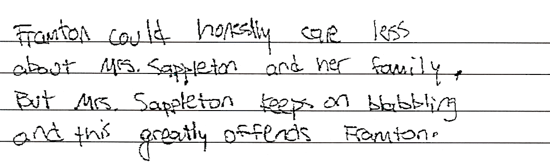 Framton could honestly care less
about Mrs. Sappleton and her family.
But Mrs. Sappleton keeps on blabbling
and this greatly offends Framton.